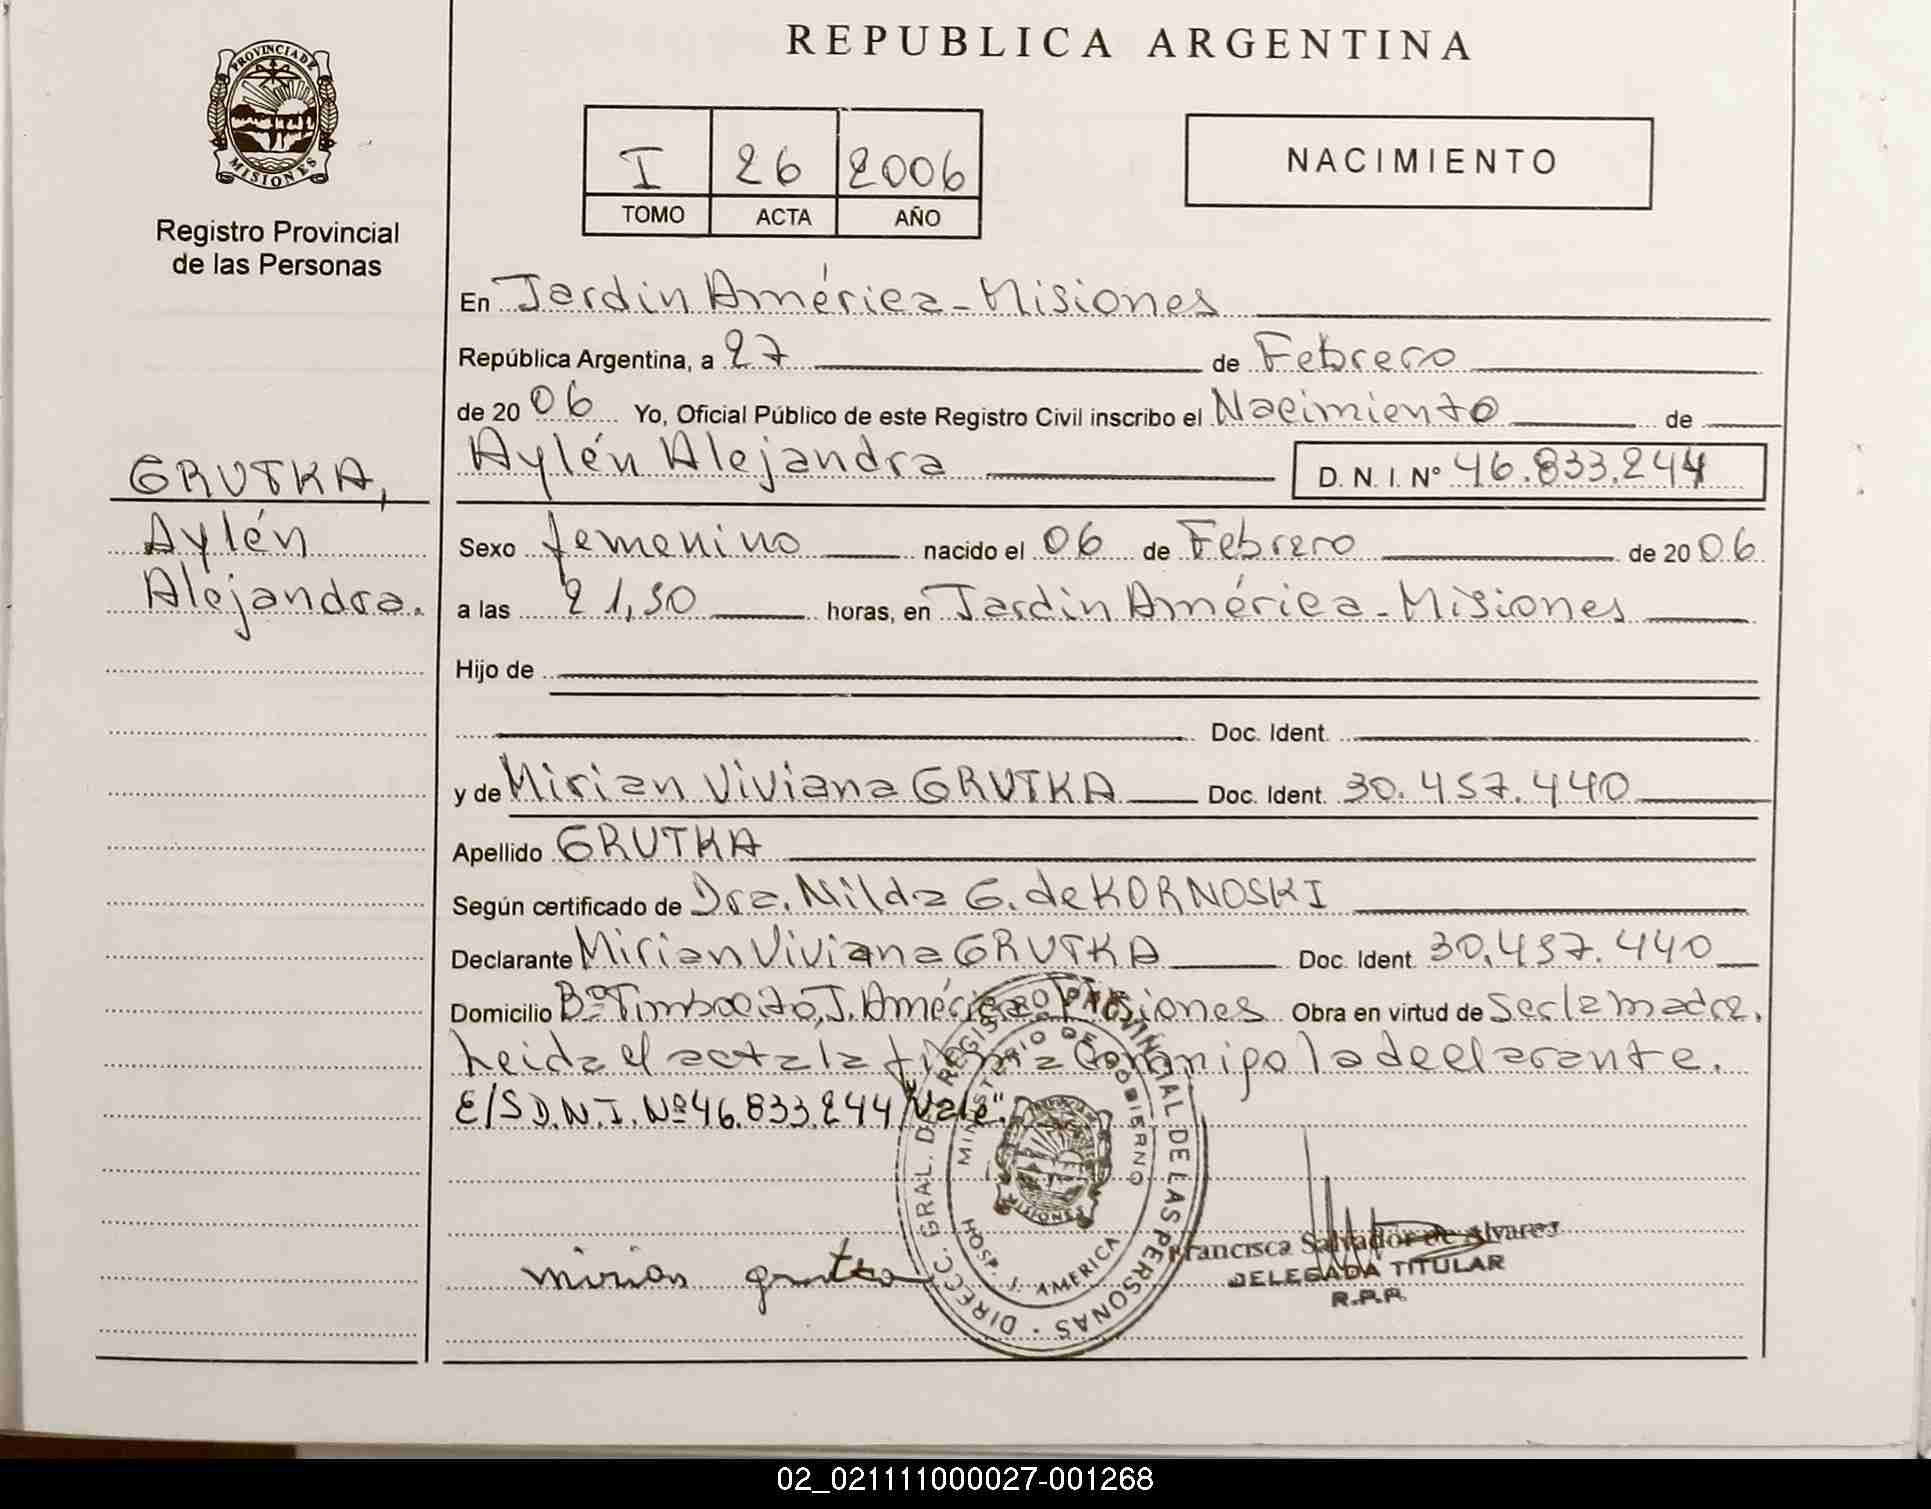 REPUBLICA ARGENTINA
PROVINCIA DE
MISIONES
Registro Provincial
de las Personas
I 26 2006
TOMO ACTA AÑO
NACIMIENTO
En Jardin América - Misiones
República Argentina, a 27 de Febrero
de 2006 Yo, Oficial Público de este Registro Civil inscribo el Nacimiento de
Aylén Alejandra D. N. I. Nº 46.833.244
GRUTKA,
Aylén
Alejandra.
Sexo femenino nacido el 06 de Febrero de 2006
a las 21,30 horas, en Jardin América - Misiones
Hijo de
Doc. Ident.
y de Mirian Viviana GRUTKA Doc. Ident. 30.457.440
Apellido GRUTKA
Según certificado de Dra. Nilda G. de KORNOSKI
Declarante Mirian Viviana GRUTKA Doc. Ident. 30.457.440
Domicilio Bº Timbocito, J. América Misiones Obra en virtud de ser la madre.
Leida el acta la firma conmigo la declarante.
E/S D.N.I. Nº 46.833.244 "Vale".
DIRECC. GRAL. DE REGISTRO PROVINCIAL DE LAS PERSONAS
MINISTERIO DE GOBIERNO
MISIONES
HOSP. J. AMERICA
mirian grutka
Francisca Salvador de Alvares
DELEGADA TITULAR
R.P.P.
02_021111000027-001268